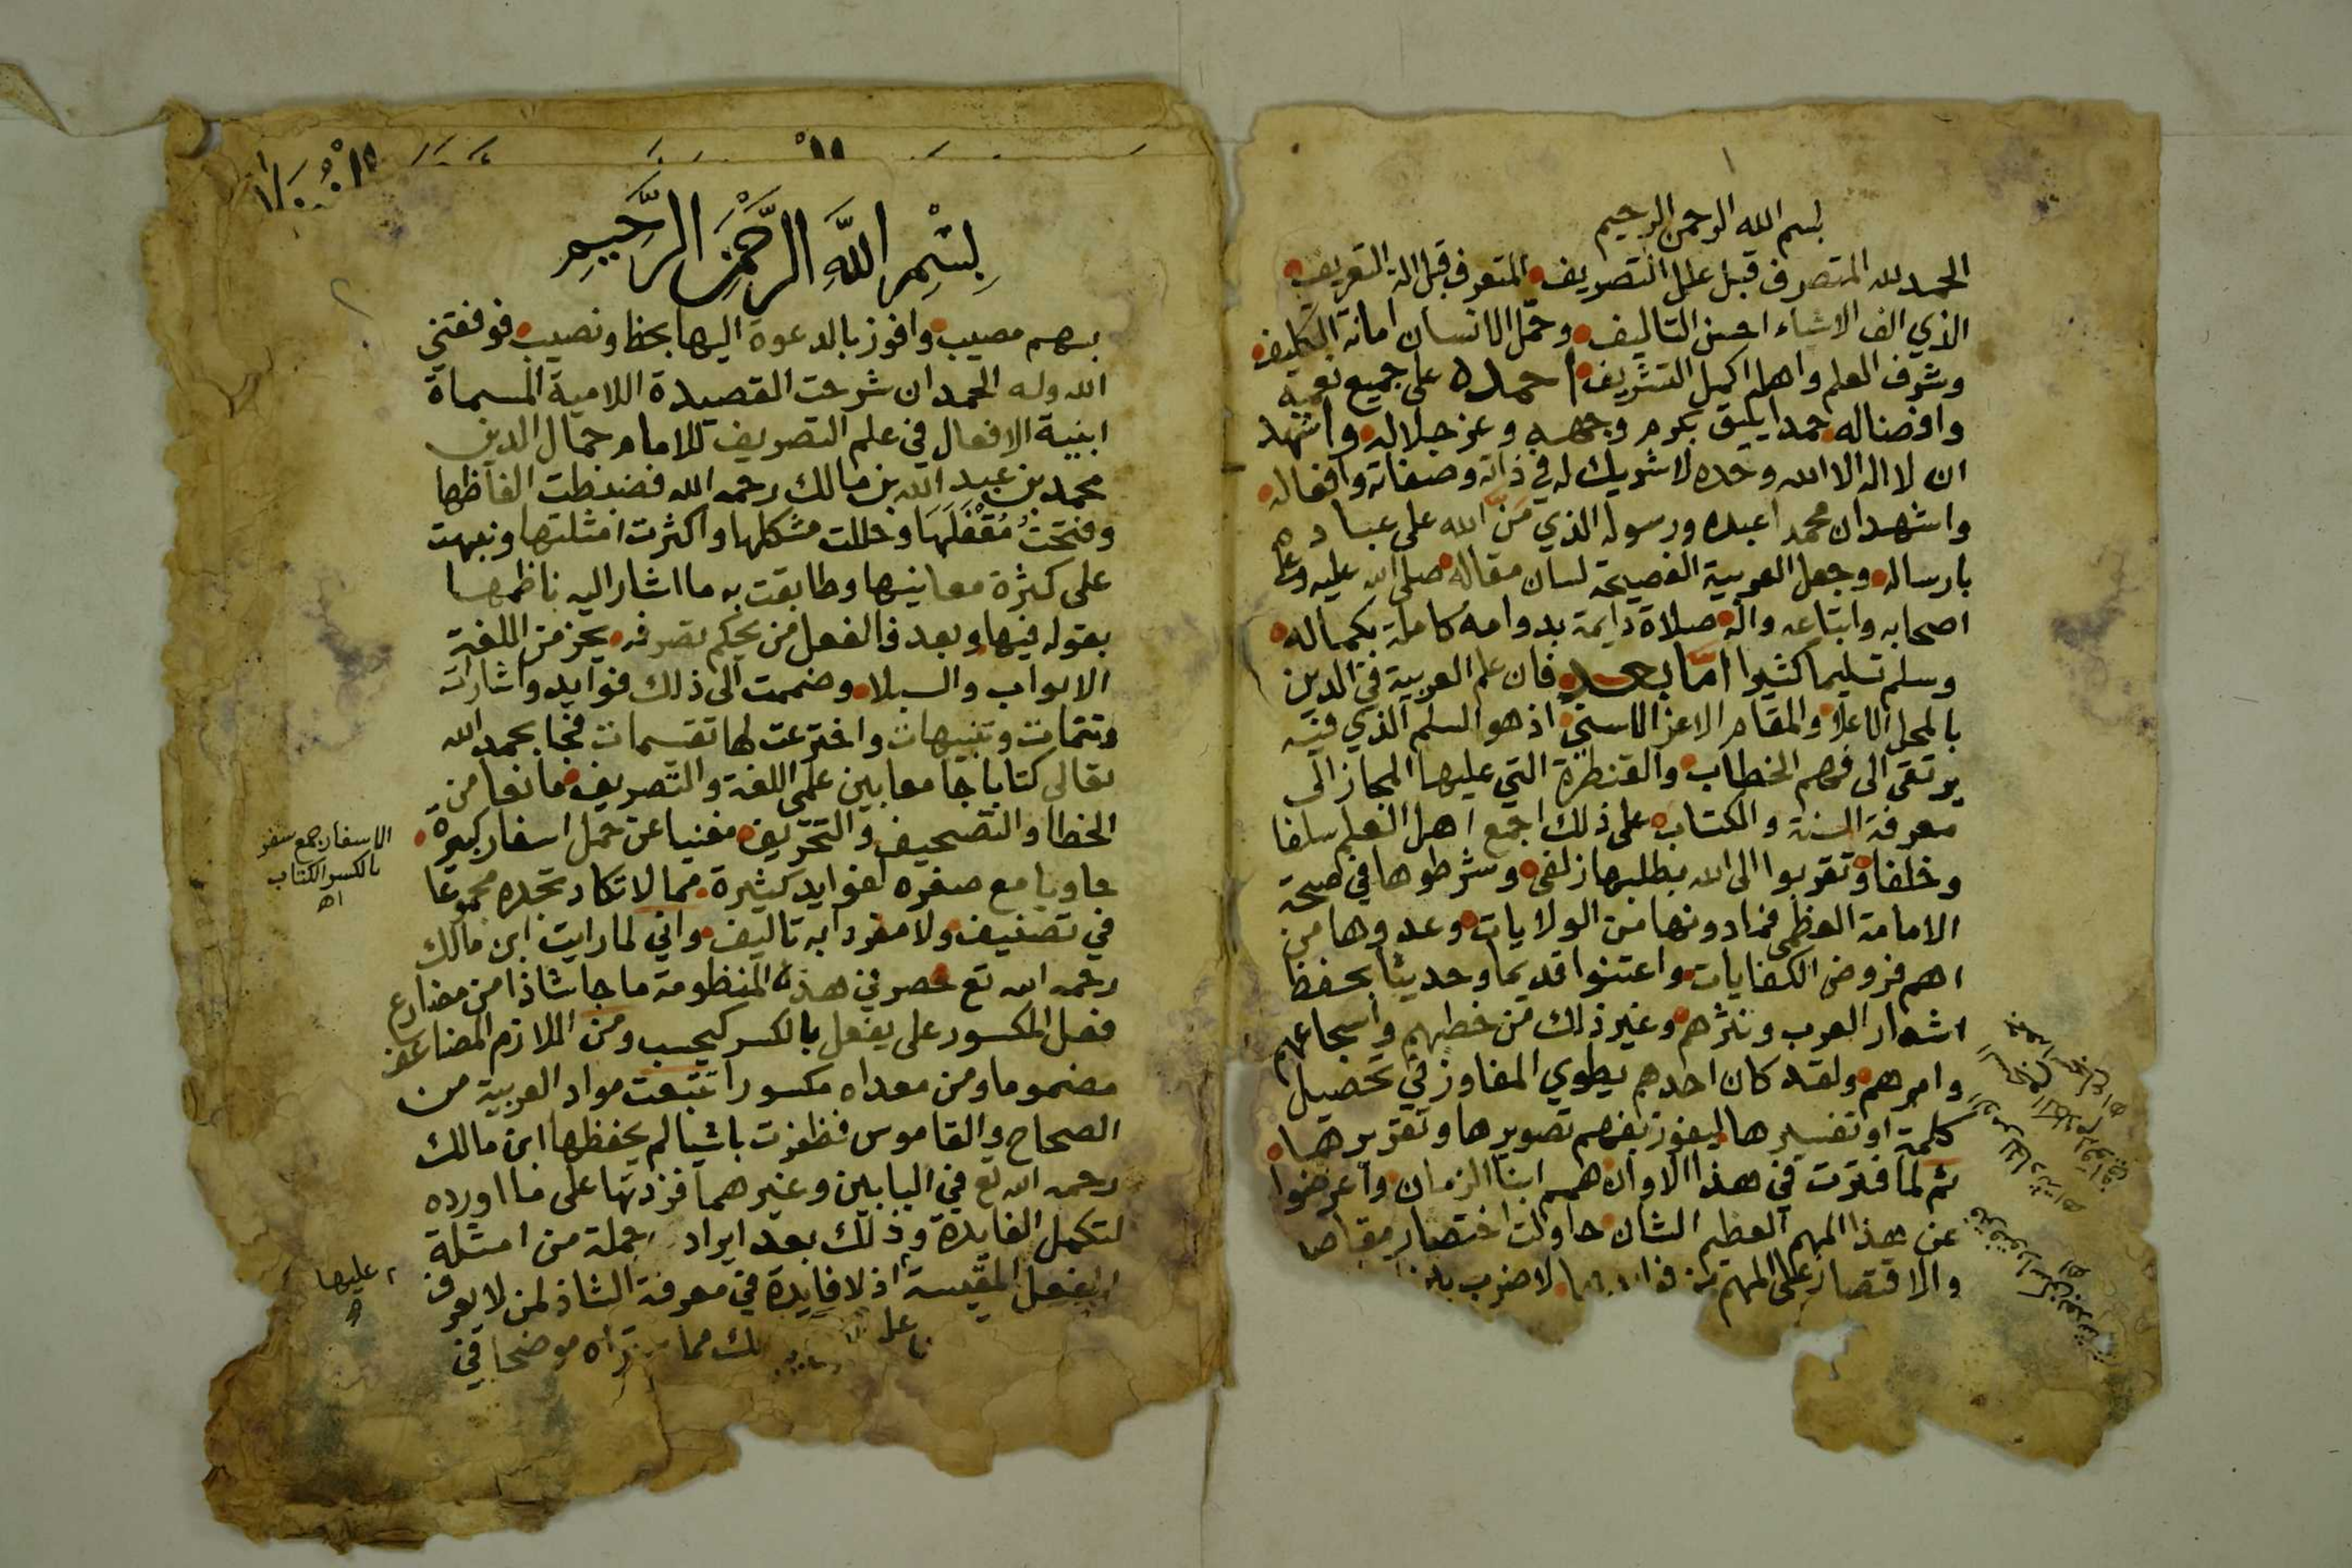 بسم الله الرحمن الرحيم
الحمد لله المتصرف قبل علل التصريف المتعرف قبل الة التعريف
الذي الف الاشياء احسن التاليف وحمل الانسان امانة التكليف
وشرف العلم واهله اكمل التشريف احمده على جميع نعمه
وافضاله حمدا يليق بكرم وجهه وعز جلاله واشهد
ان لا اله الا الله وحده لا شريك له في ذاته وصفاته وافعاله
واشهد ان محمدا عبده ورسوله الذي من الله على عباده
بارساله وجعل العربية الفصيحة لسان مقاله صلى الله عليه وعلى
اصحابه واتباعه واله صلاة دايمة بدوامه كاملة بكماله
وسلم تسليما كثيرا اما بعد فان علم العربية في الدين
بالمحل الاعلا والمقام الاعز الاسنى اذ هو السلم الذي فيه
يرتقى الى فهم الخطاب والقنطرة التي عليها المجاز الى
معرفة السنة والكتاب على ذلك اجمع اهل العلم سلفا
وخلفا وتقربوا الى الله بطلبها زلفى وشرطوها في صحة
الامامة العظمى فما دونها من الولايات وعدوها من
اهم فروض الكفايات واعتنوا قديما وحديثا بحفظ
اشعار العرب ونثرهم وغير ذلك من خطبهم واسجاعهم
وامرهم ولقد كان احدهم يطوي المفاوز في تحصيل
كلمة او تفسيرها ليفوز بفهم تصويرها وتقريرها
ثم لما فترت في هذا الاوان همم ابنا الزمان واعرضوا
عن هذا المهم العظيم الشان حاولت اختصار مقاصا
والاقتصار على المهم من لاضرب به
بسم الله الرحمن الرحيم
بسهم مصيب وافوز بالدعوة اليها بحظ ونصيب فوفقني
الله وله الحمد ان شرحت القصيدة اللامية المسماة
ابنية الافعال في علم التصريف للامام جمال الدين
محمد بن عبد الله بن مالك رحمه الله فضبطت الفاظها
وفتحت مقفلها وحللت مشكلها واكثرت امثلتها ونبهت
على كثرة معانيها وطابقت به ما اشار اليه ناظمها
بقوله فيها وبعد فالفعل من يحكم تصرفه يحز من اللغة
الابواب والسبلا وضممت الى ذلك فوايد واشارات
وتتمات وتنبيهات واخترعت لها تقسيمات فجا بحمد الله
تعالى كتابا جامعا بين علمي اللغة والتصريف مانعا من
الخطا والتصحيف والتحريف مغنيا عن حمل اسفار كبيرة
حاويا مع صغره لفوايد كثيرة مما لا تكاد تجده مجموعا
في تصنيف ولا مفردا به تاليف واني لما رايت ابن مالك
رحمه الله تع حصر في هذه المنظومة ما جا شاذا من مضارع
فعل المكسور على يفعل بالكسر كيحسب ومن اللازم المضاعف
مضموما ومن معداه مكسورا تتبعت مواد العربية من
الصحاح والقاموس فظفزت باشيا لم يحفظها ابن مالك
رحمه الله تع في البابين وغيرهما فزدتها على ما اورده
لتكمل الفايدة وذلك بعد ايراد جملة من امثلة
الفعل المقيسة اذ لا فايدة في معرفة الشاذ لمن لا يعرف
ذلك مما تراه موضحا في
الاسفار جمع سفر
بالكسر الكتاب
اه
عليها